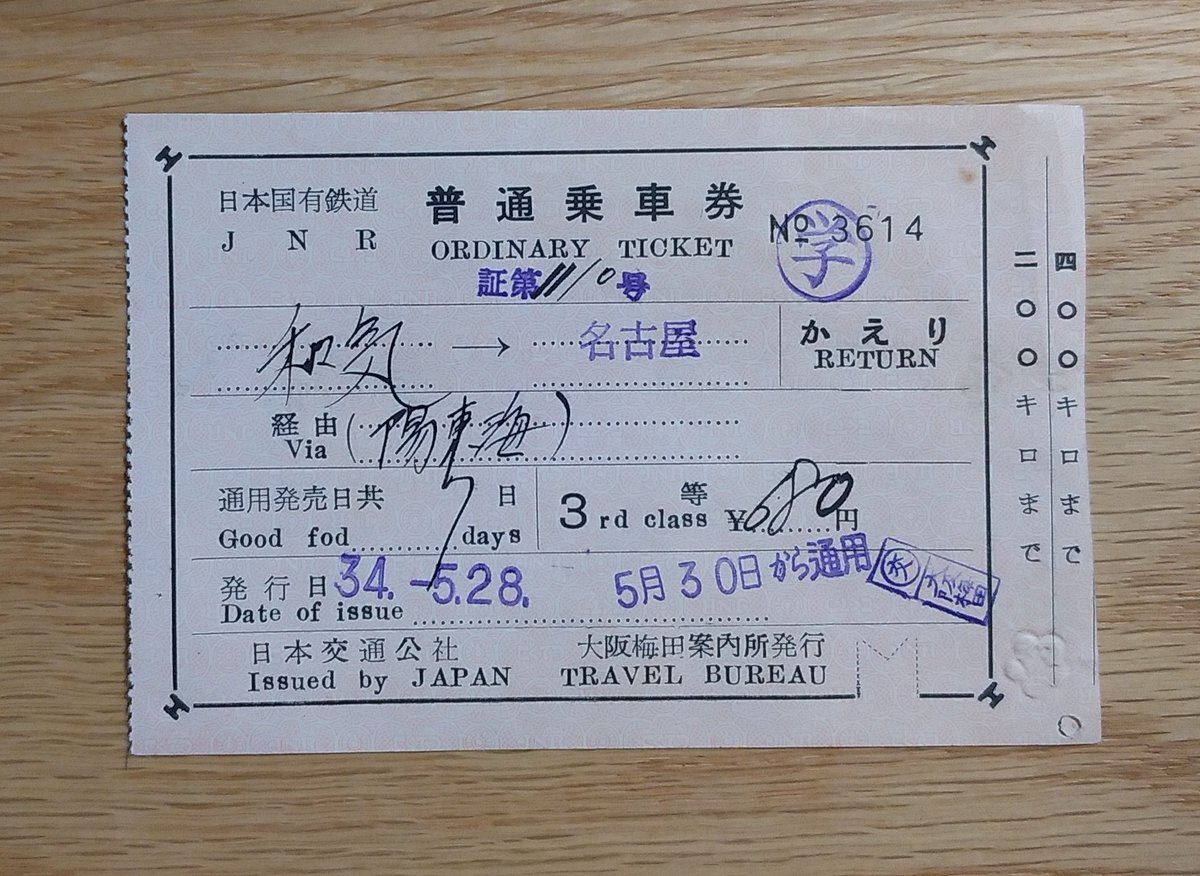 日本国有鉄道 普通乗車券
J N R ORDINARY TICKET № 3614
学
証第1110号
和気 → 名古屋 かえり
RETURN
経由 (陽東海)
Via
通用発売日共 7 日 3 等
Good fod 7 days rd class ¥680円
発行日 34.-5.28. 5月30日から通用
Date of issue
日本交通公社 大阪梅田案内所発行
Issued by JAPAN TRAVEL BUREAU
二〇〇キロまで
四〇〇キロまで